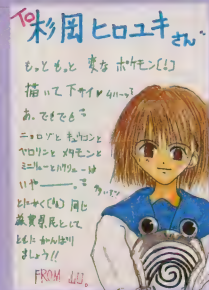 To 杉岡ヒロユキさん
もっともっと 変な ポケモン[!]
描いて下サイ♥
あ。でもでも
ニョロゾと キュウコンと
ベロリンと メタモンと
ミニリューとハクリューは
いやーー。
とにかく 同じ
滋賀県民として
ともに がんばり
ましょう!!
FROM